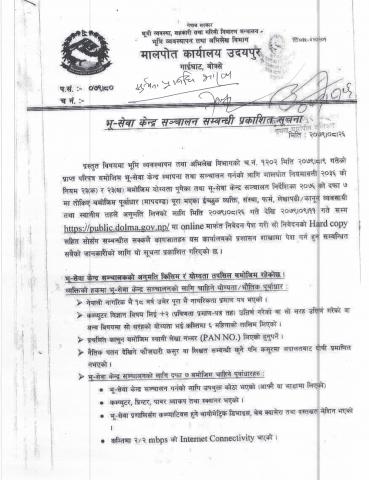 नेपाल सरकार
भूमि व्यवस्था, सहकारी तथा गरिबी निवारण मन्त्रालय
भूमि व्यवस्थापन तथा अभिलेख विभाग
मालपोत कार्यालय उदयपुर
गाईघाट, बोक्से
प.सं.: ०७९/८०
च नं.:
भू-सेवा केन्द्र सञ्चालन सम्बन्धी प्रकाशित सूचना
मिति : २०७९/०८/२६
प्रस्तुत विषयमा भूमि व्यवस्थापन तथा अभिलेख विभागको च.नं. १२०२ मिति २०७९/०८/१९ गतेको
प्राप्त परिपत्र बमोजिम भू-सेवा केन्द्र स्थापना तथा सञ्चालन गर्नको लागि मालपोत नियमावली २०३६ को
नियम २३(क) र २३(ख) बमोजिम योग्यता पुगेका तथा भू-सेवा केन्द्र सञ्चालन निर्देशिका २०७६ को दफा ७
मा तोकिए बमोजिम पूर्वाधार (मापदण्ड) पूरा भएका ईच्छुक व्यक्ति, संस्था, फर्म, लेखापढी/कानून व्यवसायी
तथा स्थानीय तहले अनुमति लिनको लागि मिति २०७९/०८/२६ गते देखि २०७९/०९/११ गते सम्म
https://public.dolma.gov.np/ मा online मार्फत निवेदन पेश गरी सो निवेदनको Hard copy
सहित सोसँग सम्बन्धीत सक्कलै कागजातहरु यस कार्यालयको प्रशासन शाखामा पेश गर्न हुन सम्बन्धित
सबैको जानकारीको लागि यो सूचना प्रकाशित गरिएको छ ।
भू-सेवा केन्द्र सञ्चालकको अनुमति किसिम र योग्यता तपसिल बमोजिम रहेकोछ ।
व्यक्तिको हकमा भू-सेवा केन्द्र सञ्चालनको लागि चाहिने योग्यता/भौतिक पूर्वाधार :
➢ नेपाली नागरिक मै १८ वर्ष उमेर पूरा भै नागरिकता प्रमाण पत्र भएको ।
➢ कम्प्युटर विज्ञान विषय लिई +२ (प्रविणता प्रमाण-पत्र तह) उत्तिर्ण गरेको वा सो सरह उत्तिर्ण गरेको वा
अन्य विषयमा सो सरहको योग्यता भई कम्तिमा ६ महिनाको तालिम लिएको ।
➢ प्रचलित कानून बमोजिम स्थायी लेखा नम्बर (PAN NO.) लिएको हुनुपर्ने ।
➢ नैतिक पतन देखिने फौजदारी कसूर वा लिखत सम्बन्धी कुनै पनि कसूरमा अदालतबाट दोषी प्रमाणित
नभएको ।
➢ भू-सेवा केन्द्र सञ्चालनको लागि दफा ७ बमोजिम चाहिने पूर्वाधारहरु :
• भू-सेवा केन्द्र सञ्चालन गर्नको लागि उपयुक्त कोठा भएको (आफ्नै वा भाडामा लिएको)
• कम्प्युटर, प्रिन्टर, पावर व्याकप तथा स्क्यानर भएको ।
• भू-सेवा प्रणालीसँग कम्प्याटिवल हुने बायोमेट्रिक डिभाइस, वेब क्यामेरा तथा दस्तखत मेशिन भएको
।
• कम्तिमा २/२ mbps को Internet Connectivity भएको ।